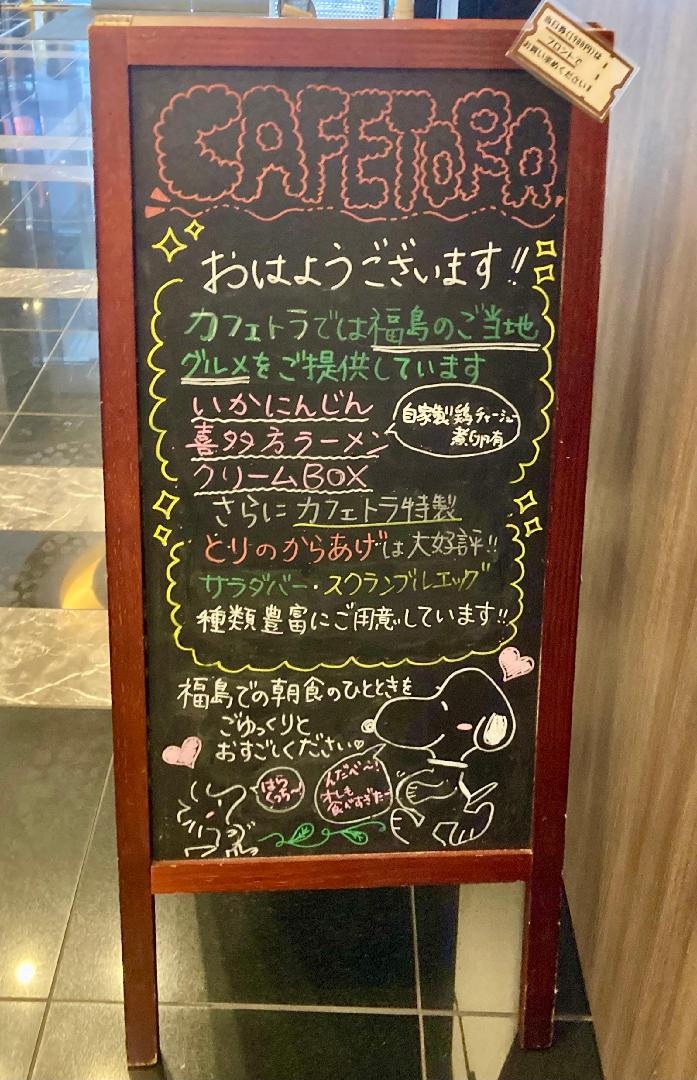 当日券(1980円)は
フロントで
お買い求めください!
CAFETORA
おはようございます!!
カフェトラでは福島のご当地
グルメをご提供しています
いかにんじん
喜多方ラーメン
自家製鶏チャーシュー
煮卵有
クリームBOX
さらにカフェトラ特製
とりのからあげは大好評!!
サラダバー・スクランブルエッグ
種類豊富にご用意しています!!
福島での朝食のひとときを
ごゆっくりと
おすごしください♡
はら
くっち〜
んだべ〜!
オレも
食べすぎた〜